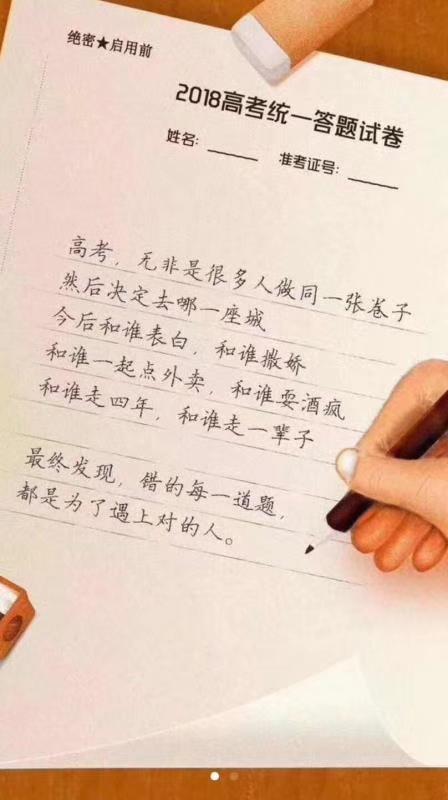 绝密★启用前
2018高考统一答题试卷
姓名：
准考证号：
高考，无非是很多人做同一张卷子
然后决定去哪一座城
今后和谁表白，和谁撒娇
和谁一起点外卖，和谁耍酒疯
和谁走四年，和谁走一辈子
最终发现，错的每一道题，
都是为了遇上对的人。